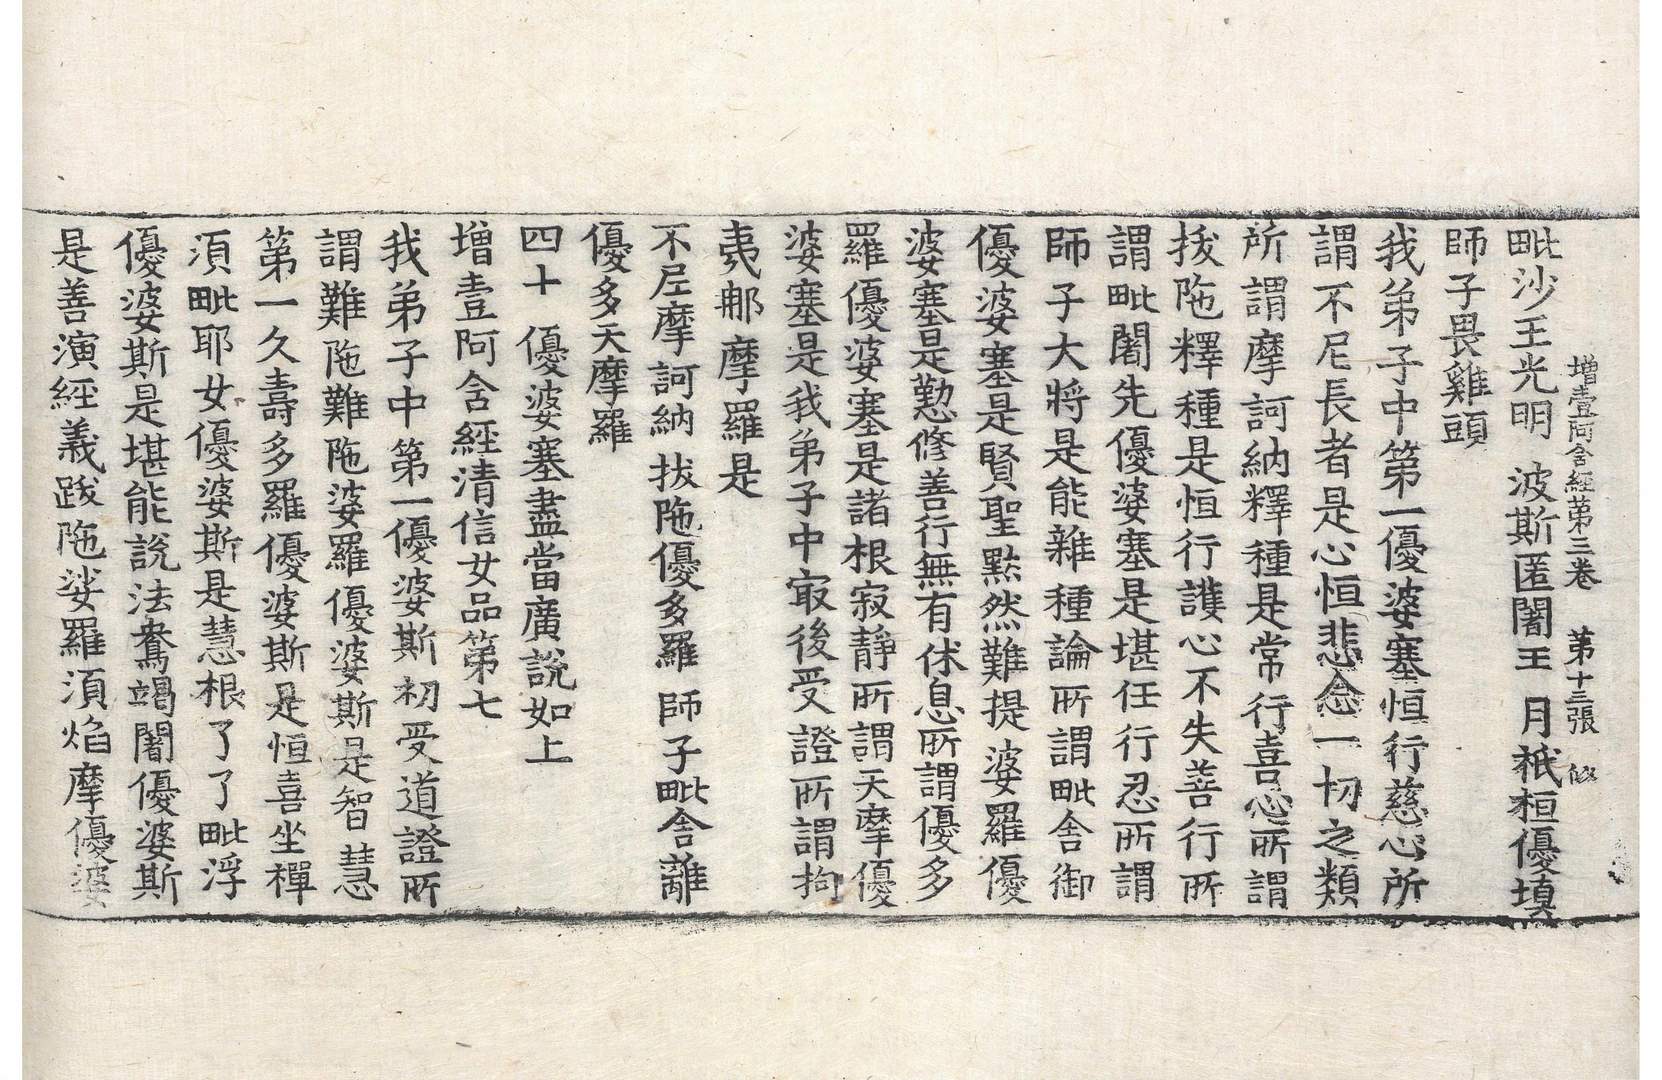 增壹阿含經第三卷 第十三張 似
毗沙王光明 波斯匿闍王 月祇桓優塡
師子畏雞頭
我弟子中第一優婆塞恒行慈心所
謂不尼長者是心恒悲念一切之類
所謂摩訶納釋種是常行喜心所謂
拔陁釋種是恒行護心不失善行所
謂毗闍先優婆塞是堪任行忍所謂
師子大將是能雜種論所謂毗舍御
優婆塞是賢聖默然難提婆羅優
婆塞是懃修善行無有休息所謂優多
羅優婆塞是諸根寂靜所謂天摩優
婆塞是我弟子中㝡後受證所謂拘
夷那摩羅是
不尼摩訶納 拔陁優多羅 師子毗舍離
優多天摩羅
四十 優婆塞盡當廣說如上
增壹阿含經清信女品第七
我弟子中第一優婆斯初受道證所
謂難陁難陁婆羅優婆斯是智慧
第一久壽多羅優婆斯是恒喜坐禪
須毗耶女優婆斯是慧根了了毗浮
優婆斯是堪能說法鴦竭闍優婆斯
是善演經義跋陁娑羅須焰摩優婆